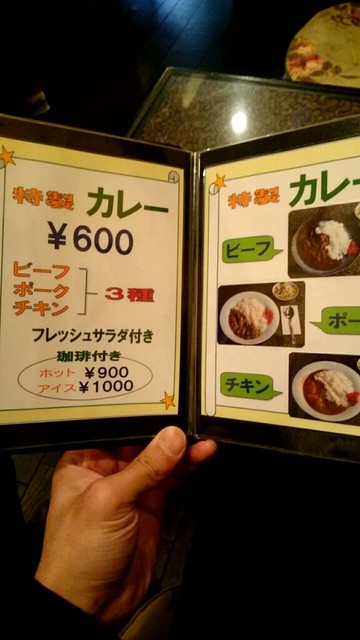 特製 カレー
¥600
ビーフ
ポーク
チキン
3種
フレッシュサラダ付き
珈琲付き
ホット ¥900
アイス ¥1000
特製 カレ
ビーフ
ポー
チキン